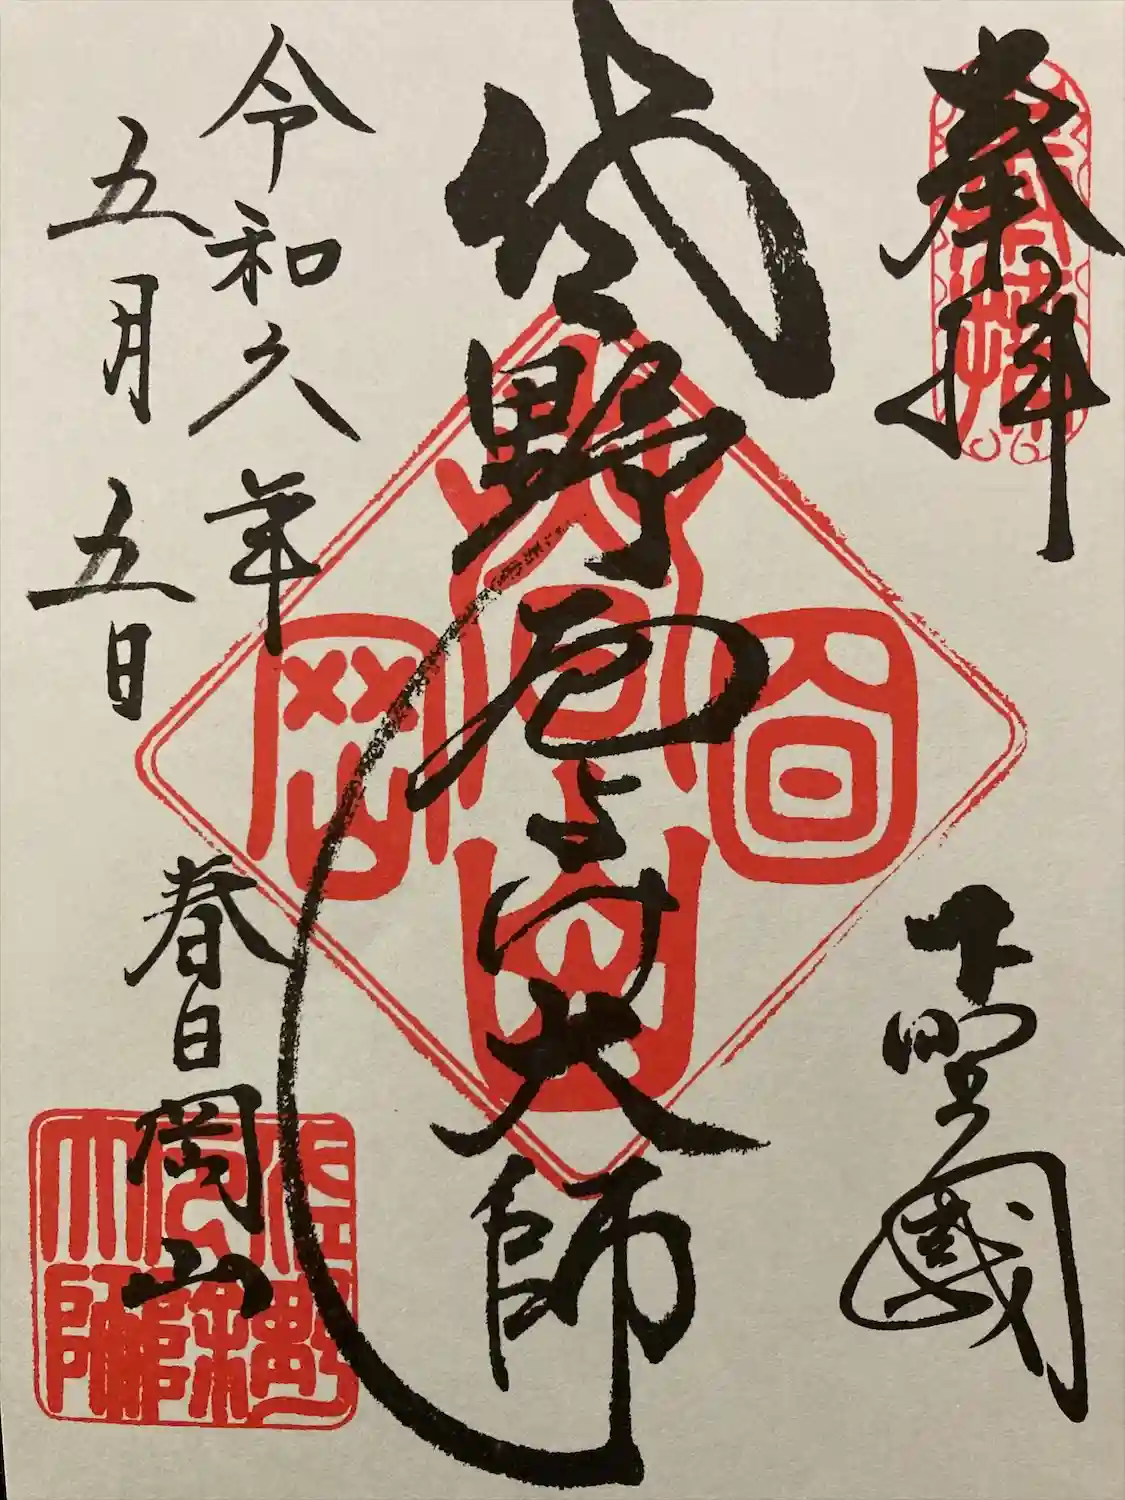 奉拝
下野國
佐野厄よけ大師
令和六年
五月五日
春日岡山
奉拝